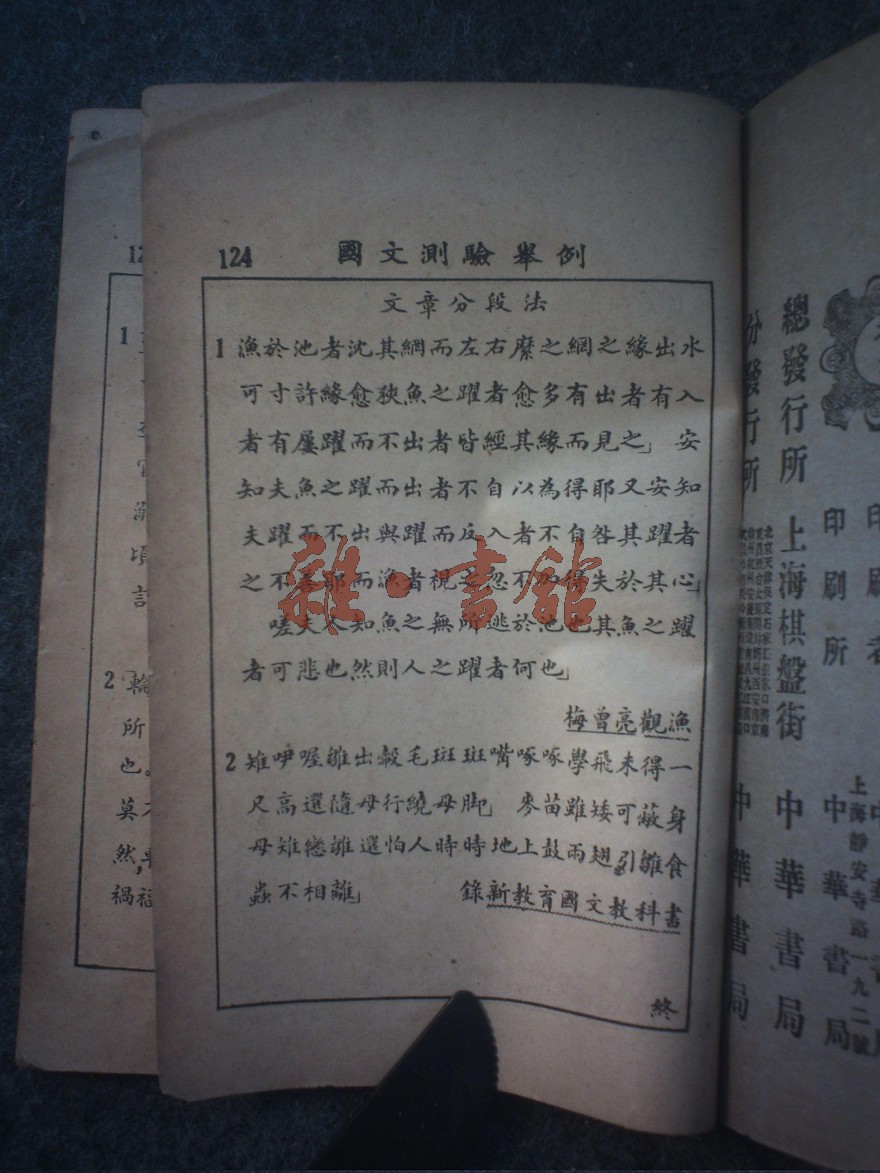 124 國文測驗舉例
文章分段法
1 漁於池者沈其網而左右縻之網之緣出水
可寸許緣愈狹魚之躍者愈多有出者有入
者有屢躍而不出者皆經其緣而見之」 安
知夫魚之躍而出者不自以為得耶又安知
夫躍而不出與躍而反入者不自咎其躍者
之不善耶而漁者視之忽不加得失於其心」
嗟夫人知魚之無所逃於池也其魚之躍
者可悲也然則人之躍者何也」
梅曾亮觀漁
2 雉咿喔雛出縠毛斑斑嘴啄啄學飛未得一
尺高還隨母行繞母脚」 麥苗雖矮可蔽身
母雉戀雛還怕人時時地上鼓兩翅引雛食
蟲不相離」 錄新教育國文教科書
終
雜·書館
12
1
頃
2 「輪
所
也。
莫
然,
禍福
總發行所 上海棋盤街 中華書局
分發行所
中華書局
印刷所
上海靜安寺路一九二號
中華書局
印刷者
中華書局